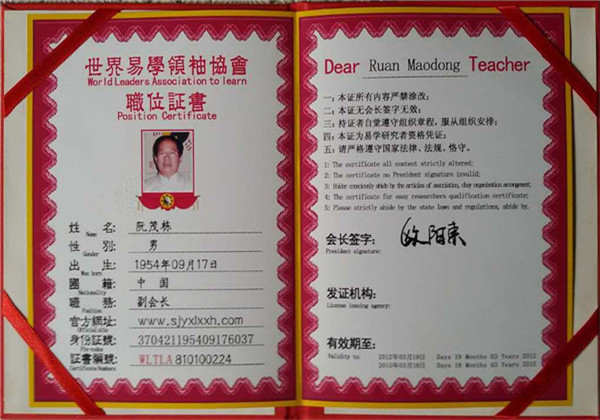 世界易學領袖協會
World Leaders Association to learn
職位証書
Position Certificate
姓 名: 阮茂栋
Name
性 別: 男
Gender
出 生: 1954年09月17日
Was born
國 籍: 中 国
Nationality
職 務: 副会长
Position
官方網址: www.sjyxlxxh.com
Official site
身份証號: 370421195409176037
証書編號: WLTLA 810100224
Certificate Numbers
Dear Ruan Maodong Teacher
一: 本证所有内容严禁涂改;
二: 本证无会长签字无效;
三: 持证者自觉遵守组织章程, 服从组织安排;
四: 本证为易学研究者资格凭证;
五: 请严格遵守国家法律、法规、恪守。
1: The certificate all content strictly altered;
2: The certificate no President signature invalid;
3: Holder consciously abide by the articles of association, obey organization arrangement;
4: The certificate for easy researchers qualification certificate;
5: Please strictly abide by the state laws and regulations, abide by.
会长签字: 欧阳东
President signature:
发证机构:
License issuing agency:
有效期至: 2012年03月19日 Days 19 Months 03 Years 2012
Validity to: 2015年03月18日 Days 18 Months 03 Years 2015